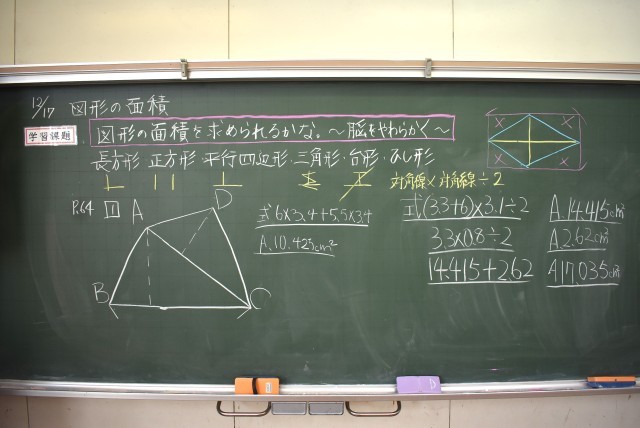 12/17 図形の面積
学習課題 図形の面積を求められるかな。~脳をやわらかく~
長方形・正方形・平行四辺形・三角形・台形・ひし形
対角線×対角線÷2
P.64 1
A
D
B
C
式 6×3.4+5.5×3.4
A.10.425cm²
式(3.3+6)×3.1÷2 A.14.415cm²
3.3×0.8÷2 A.2.62cm²
14.415+2.62 A17.035cm²